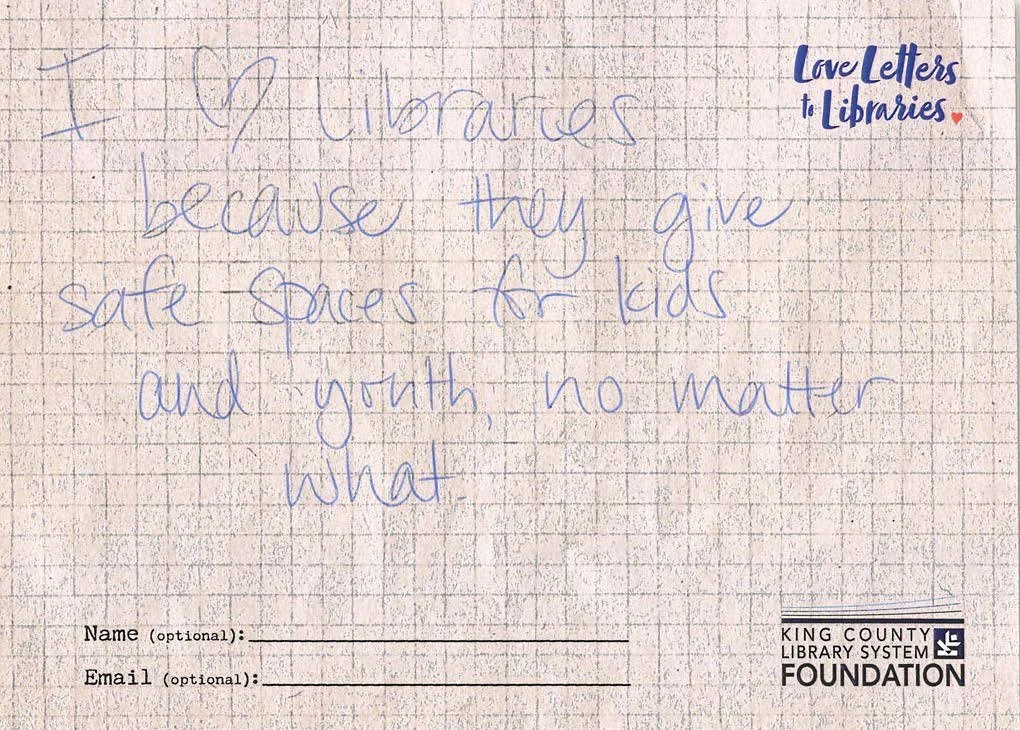 I ♡ Libraries
because they give
safe spaces for kids
and youth, no matter
what.
Love Letters
to Libraries
Name (optional):
Email (optional):
KING COUNTY
LIBRARY SYSTEM
FOUNDATION